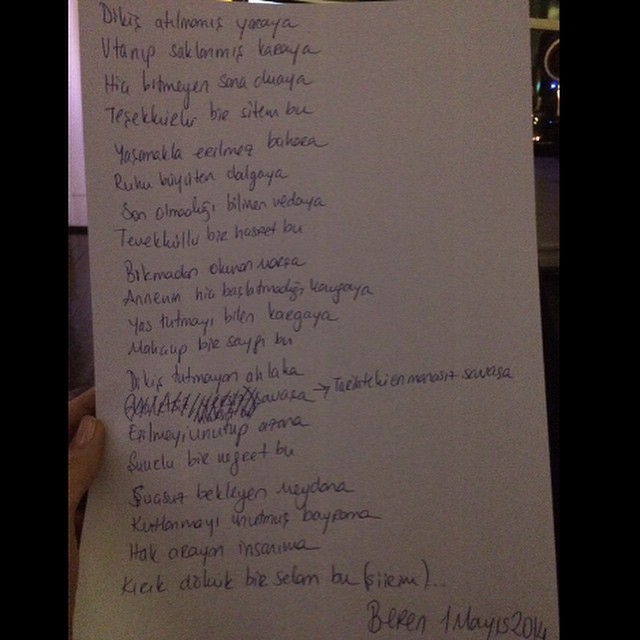 Dikiş atılmamış yaraya
Utanıp saklanmış karaya
Hiç bitmeyen sana duaya
Teşekkürlü bir sitem bu
Yaşamakla erilmez bahara
Ruhu büyüten dalgaya
Son olmadığı bilinen vedaya
Tevekküllü bir hasret bu
Bıkmadan okunan
Annemin hiç başlatmadığı kavgaya
Yas tutmayı bilen kargaya
Mahcup bir saygı bu
Dikiş tutmayan ahlaka
savaşa → Tarihteki en manasız savaşa
Ezilmeyi unutup
bir nefret bu
Şuursuz bekleyen meydana
Kutlanmayı unutmuş bayrama
Hak arayan insanıma
Kırık dökük bir selam bu (sitem)...
Beren 1 Mayıs 2014